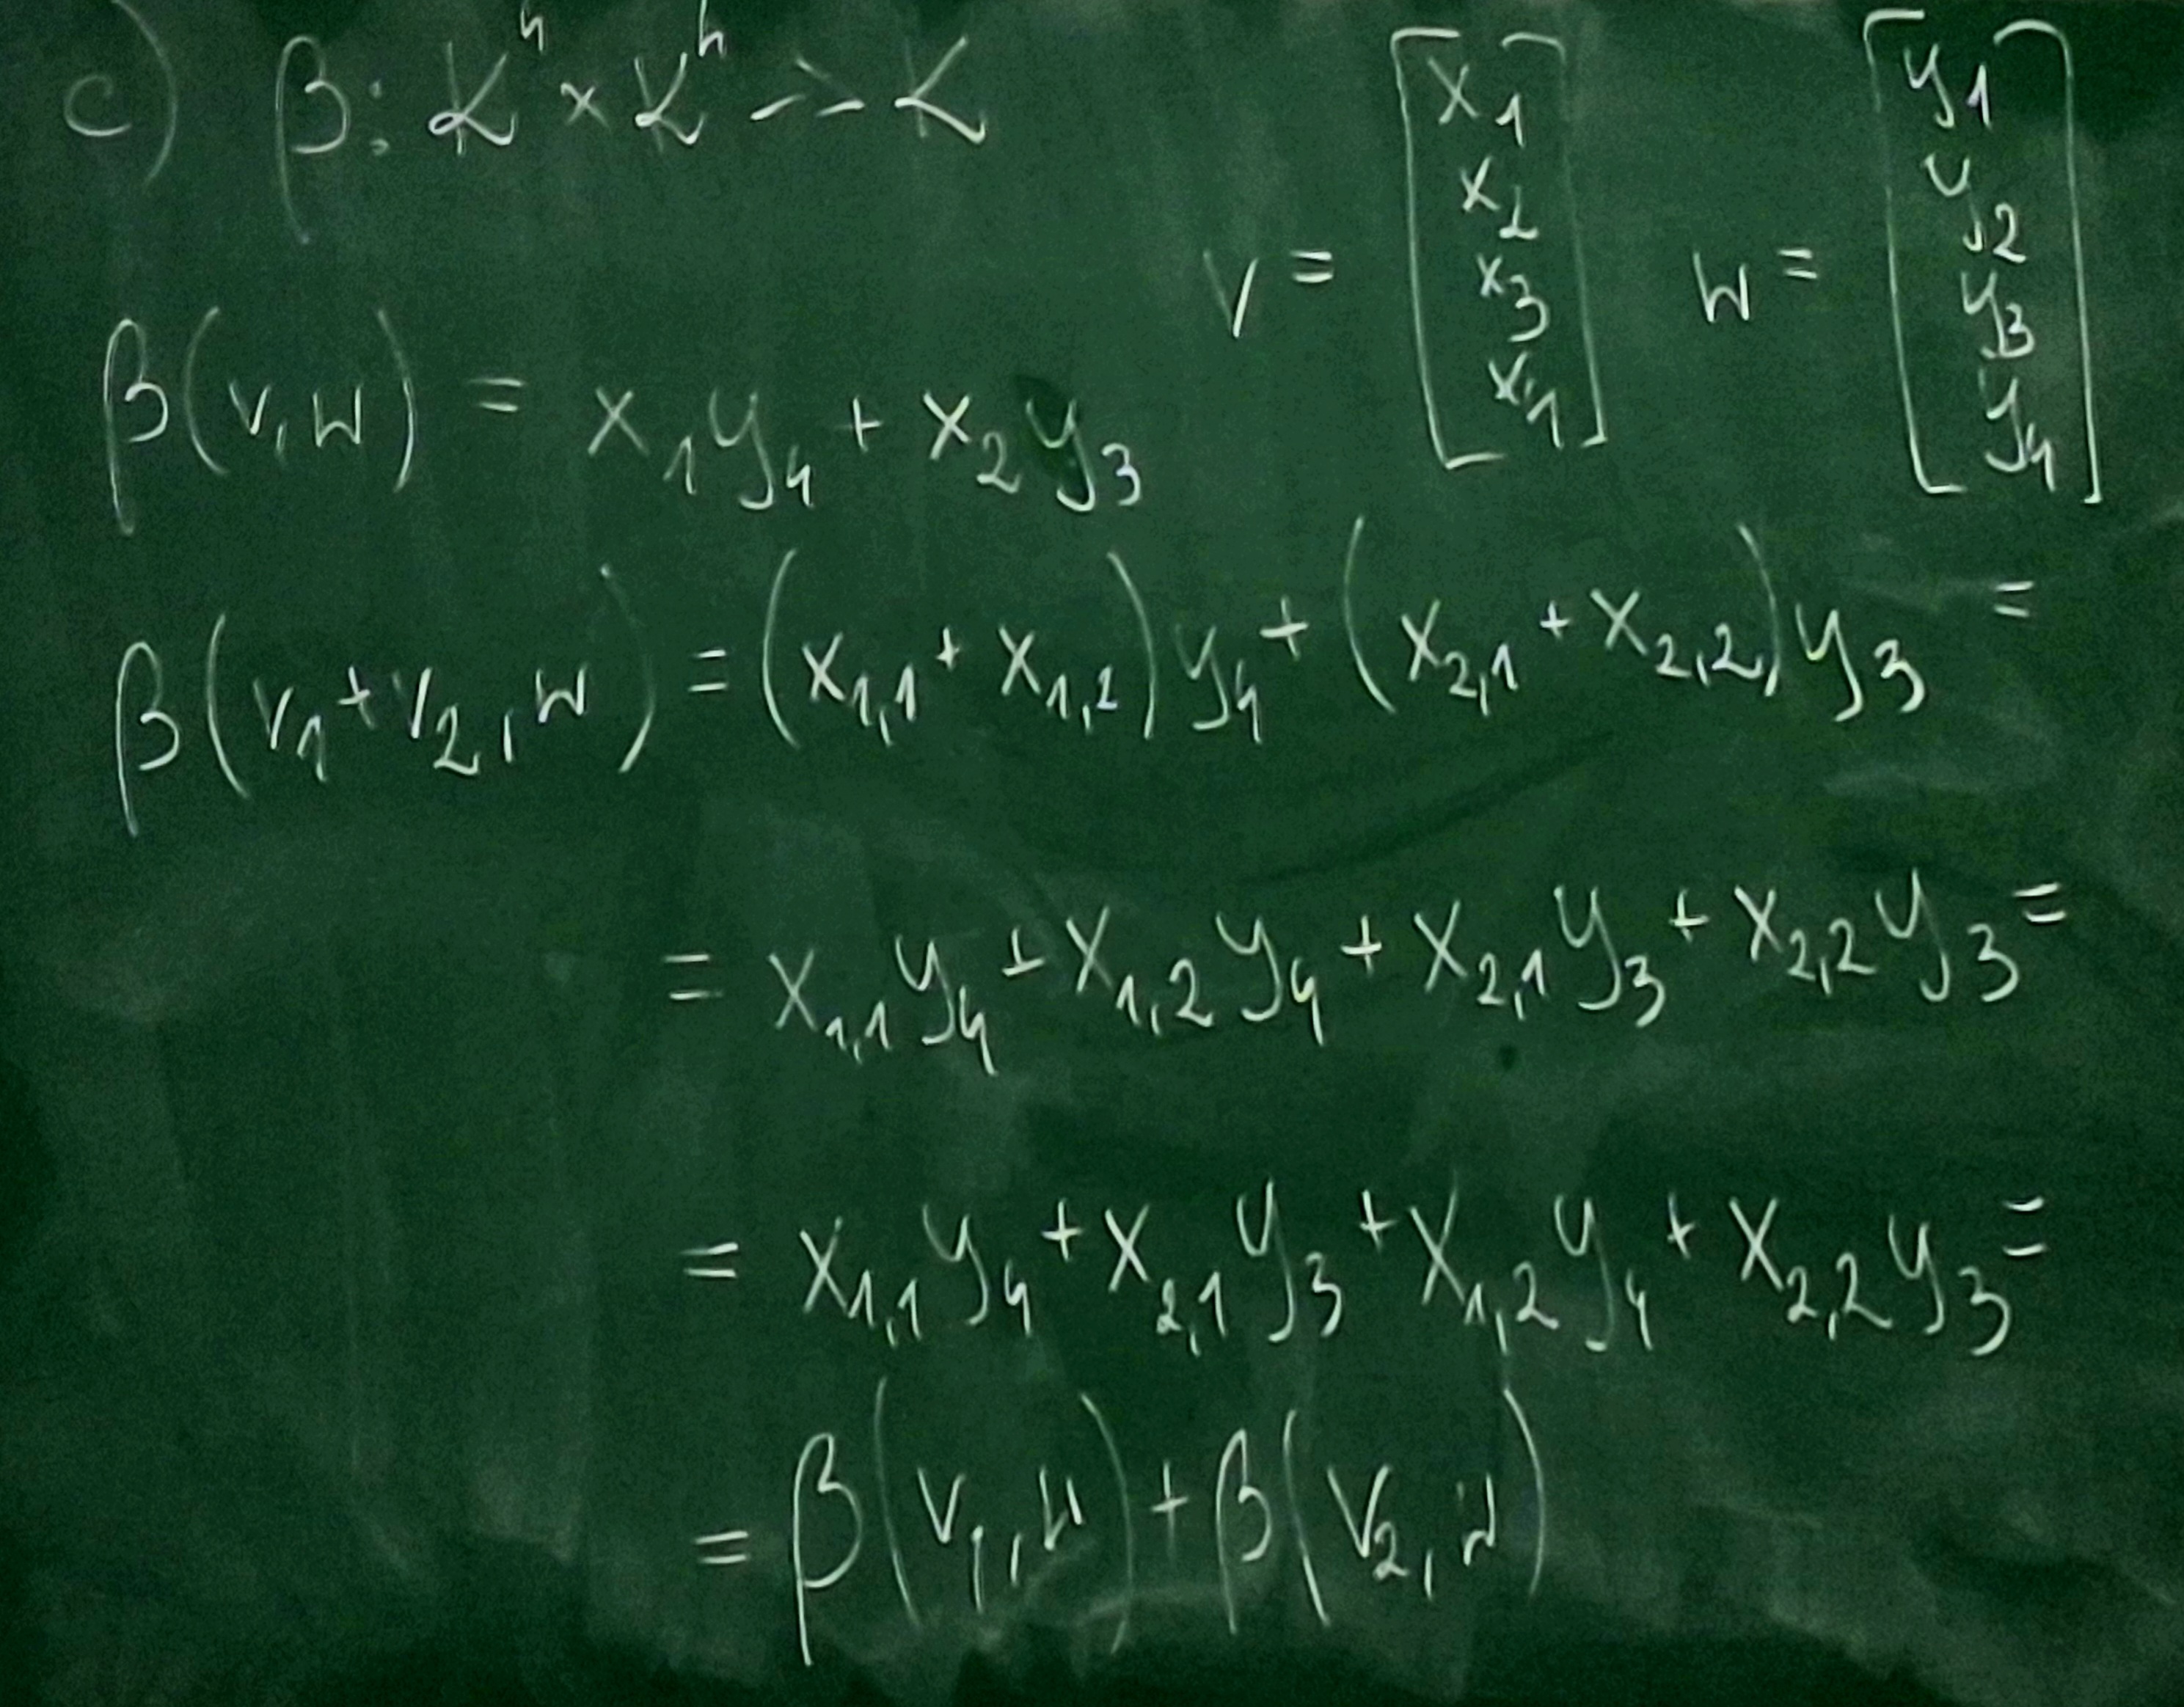 c) β: K⁴ × K⁴ -> K
v = [x₁ x₂ x₃ x₄] w = [y₁ y₂ y₃ y₄]
β(v, w) = x₁y₄ + x₂y₃
β(v₁ + v₂, w) = (x₁,₁ + x₁,₂)y₄ + (x₂,₁ + x₂,₂)y₃ =
= x₁,₁y₄ + x₁,₂y₄ + x₂,₁y₃ + x₂,₂y₃ =
= x₁,₁y₄ + x₂,₁y₃ + x₁,₂y₄ + x₂,₂y₃ =
= β(v₁, w) + β(v₂, w)